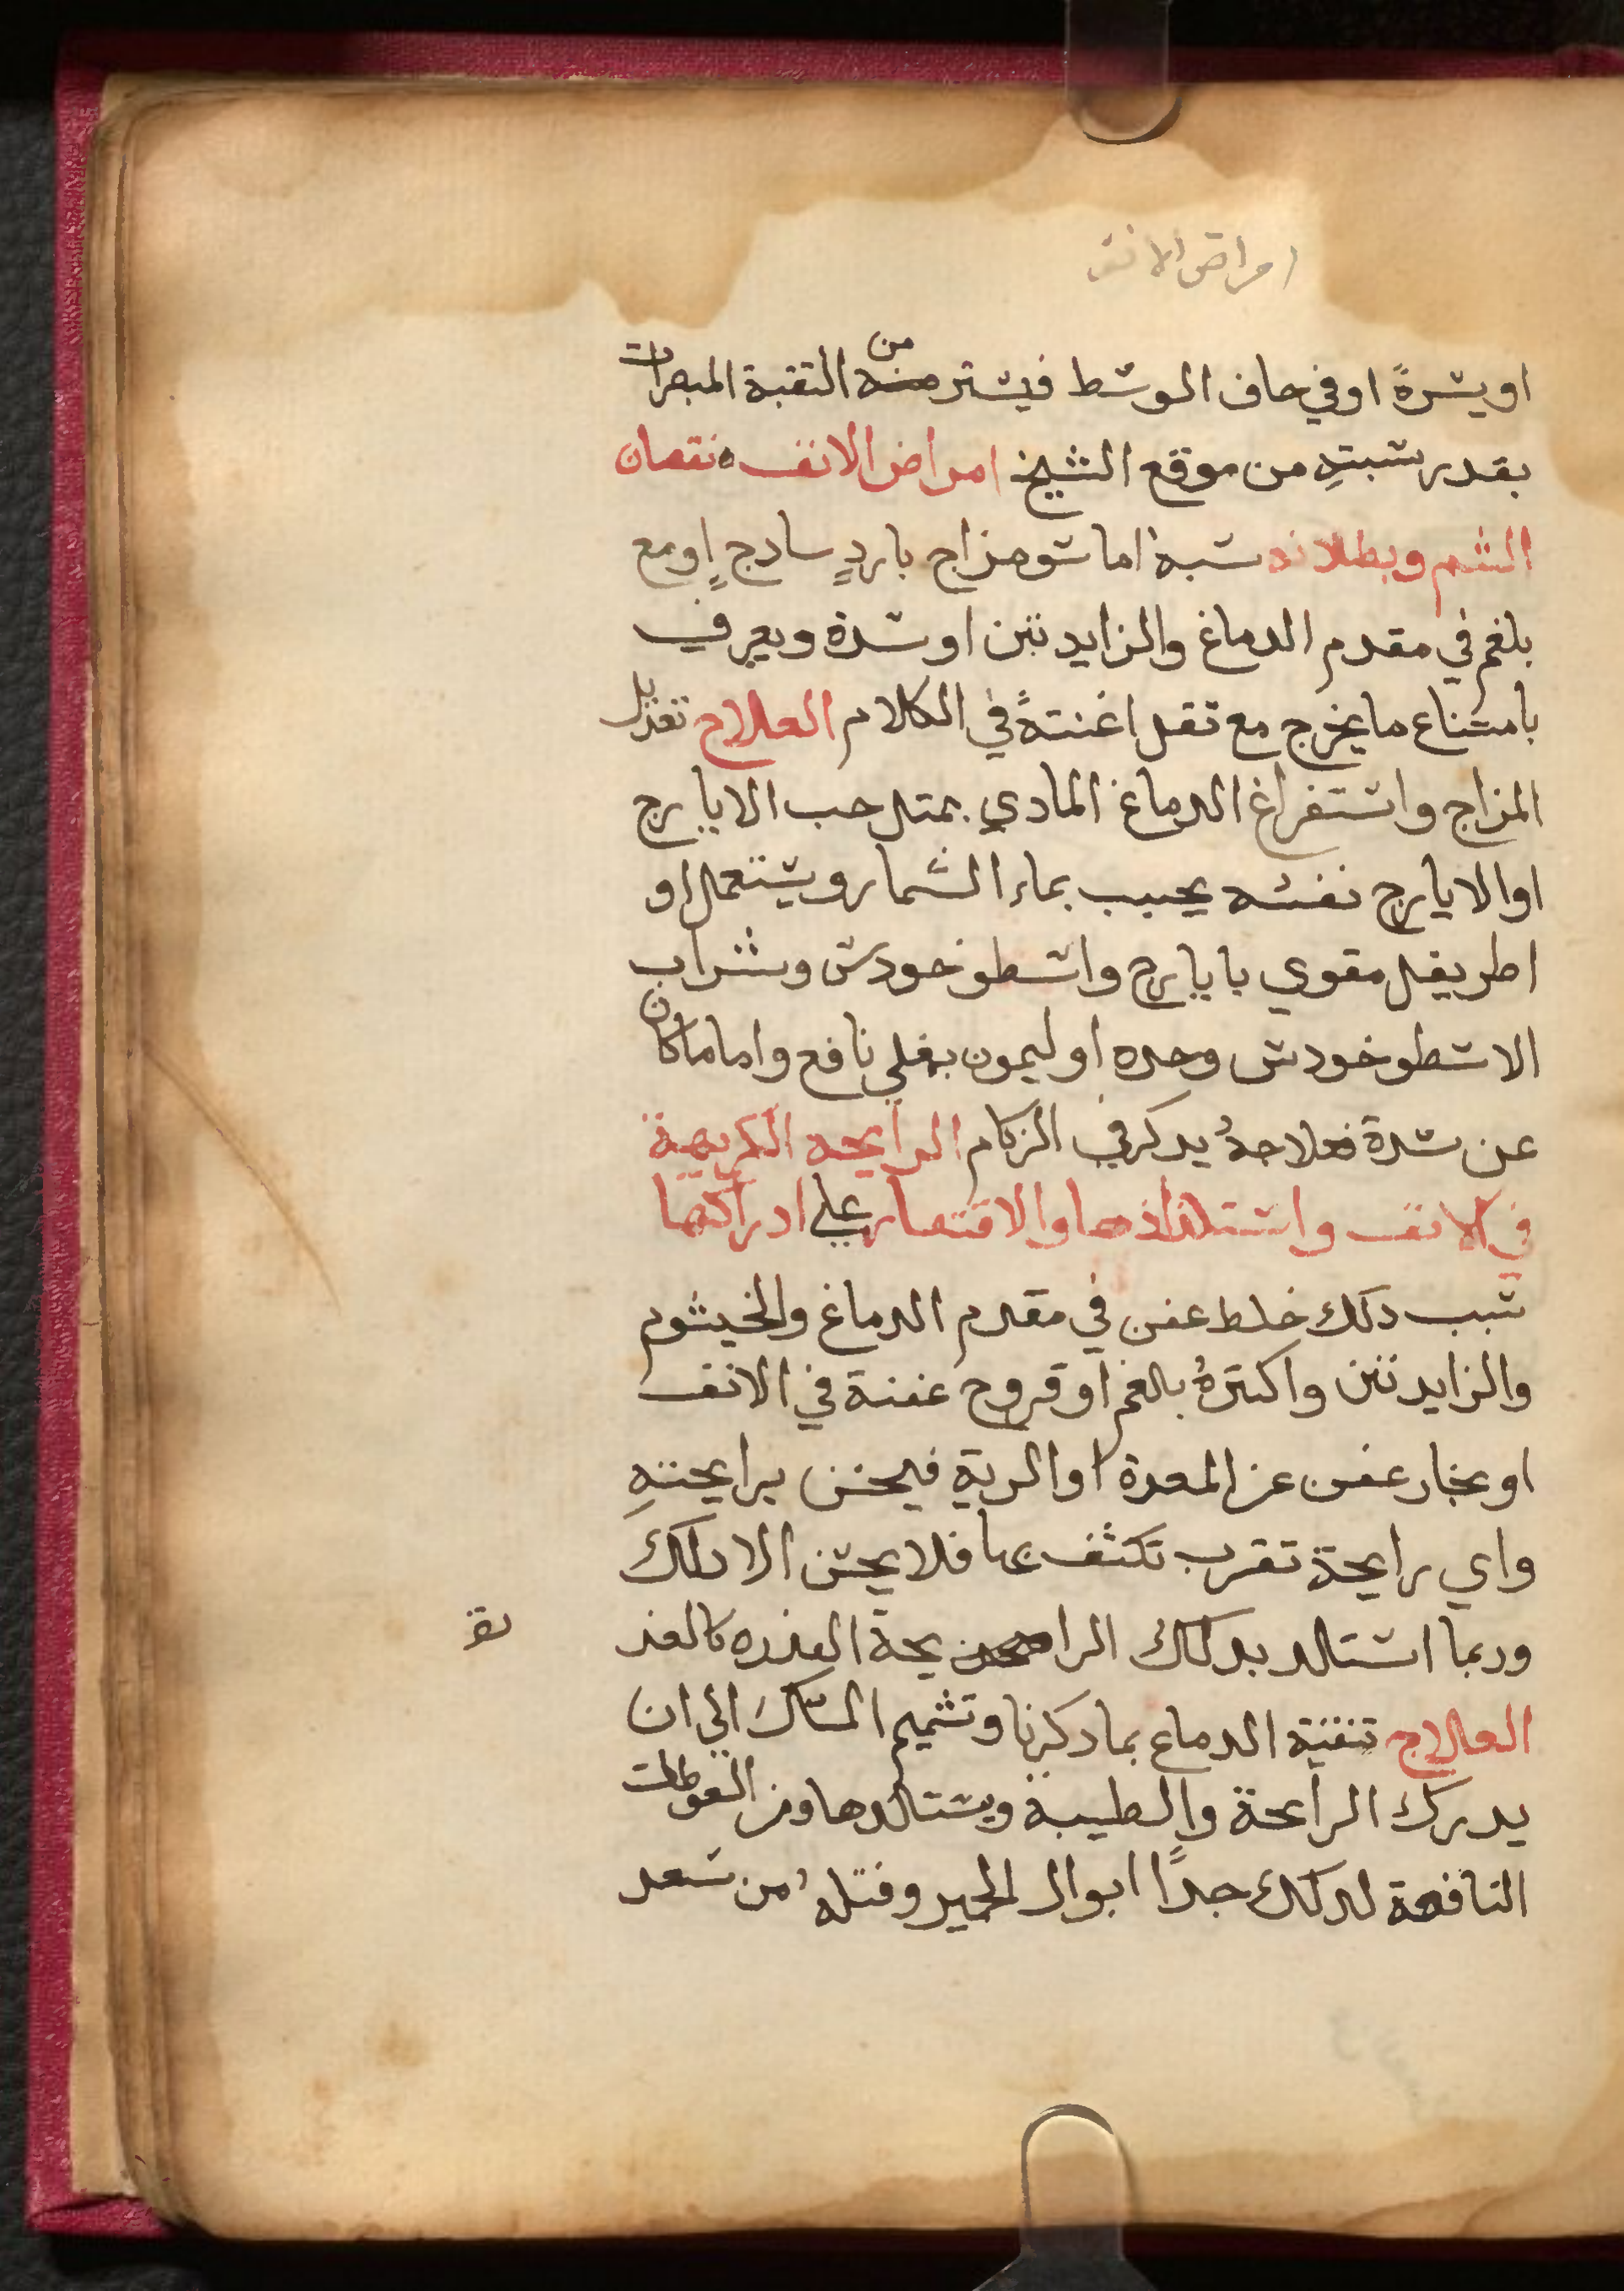 امراض الانف
او يسرةً او في حاف الوسط فيستر من التقبة المبصرات
بقدر سبته من موقع الشيخ امراض الانف ه نقصان
الشم وبطلانه سببه اما سو مزاج باردٍ سادج او مع
بلغم في مقدم الدماغ والزايدتين او سدة ويعرف
بامتناع ما يخرج مع تقل اغنتةً في الكلام العلاج تعديل
المزاج واستفراغ الدماغ المادي بمتل حب الايارج
او الايارج نفسه يحبب بماء الشمار ويستعمل او
اطريفل مقوي بايارج واسطوخودس وشراب
الاسطوخودس وحده او ليمون بغلي نافع واما ما كان
عن سدة فعلاجهُ يدكر في الزكام الرايحه الكريهة
في الانف واستلذاذها والاقتصار علي ادراكها
سبب دلك خلط عفن في مقدم الدماغ والخيشوم
والزايدتين واكترهُ بلغم او قروح عفنة في الانف
او بخار عفن عن المعدة او الرية فيحس برايحتهِ
واي رايحة تقرب تكشف بها فلا يحس الا دلك
وربما استلد بدلك الرايحة العذره كالعذ
العلاج تنقية الدماغ بما دكرنا وتشميم المسك الي ان
يدرك الرايحة والطيبة ويستلدها ومن السعوطات
النافعة لدلك جدًا ابوال الحمير وفتلهُ من سعد